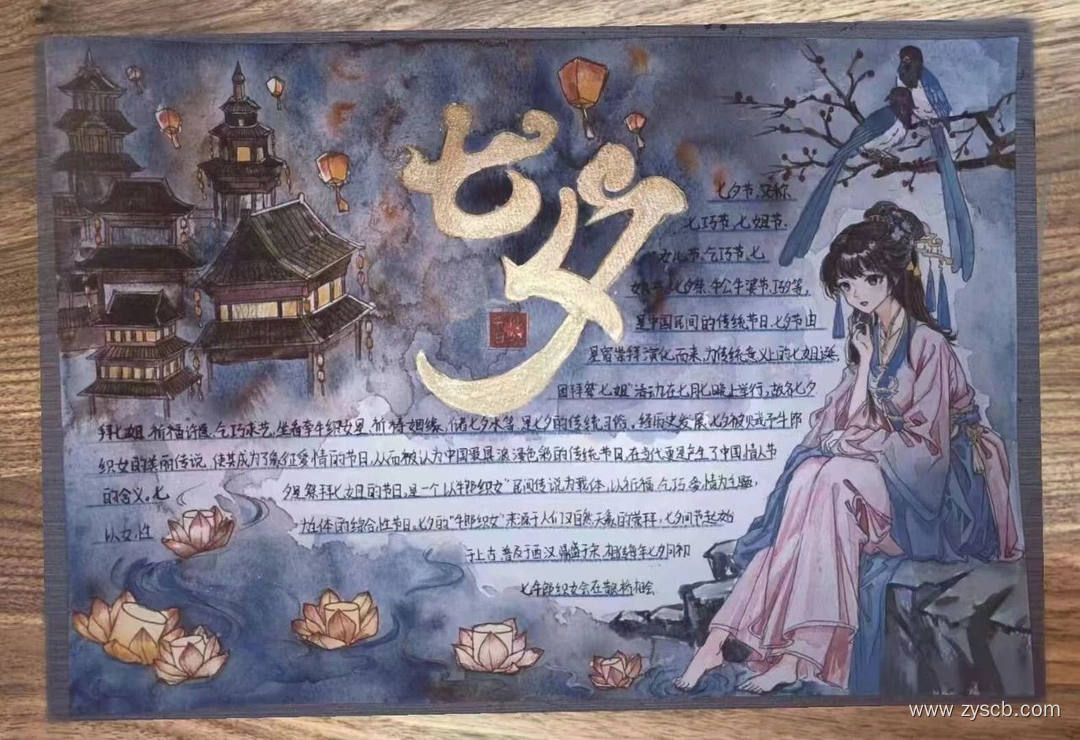 七夕
七夕节,又称
七巧节、七姐节、
女儿节、乞巧节、七
七夕祭、牛公牛婆节、巧夕等,
是中国民间的传统节日。七夕节由
星宿崇拜演化而来,为传统意义上的七姐诞,
因拜祭“七姐”活动在七月七晚上举行,故名七夕
拜七姐,祈福许愿、乞巧求艺、坐看牵牛织女星、祈祷姻缘、储七夕水等,是七夕的传统习俗。经历史发展,七夕被赋予牛郎
织女的美丽传说,使其成为了象征爱情的节日,从而被认为中国最具浪漫色彩的传统节日,在当代更是产生了中国情人节
的含义。七 夕是祭拜七姐的节日,是一个以“牛郎织女”民间传说为载体,以祈福、乞巧、爱情为主题,
以女性 为主体的综合性节日。七夕的“牛郎织女”来源于人们对自然天象的崇拜,七夕节起始
于上古,普及于西汉,鼎盛于宋,相传每年七夕月初
七牛郎织女会在鹊桥相会
www.zyscb.com